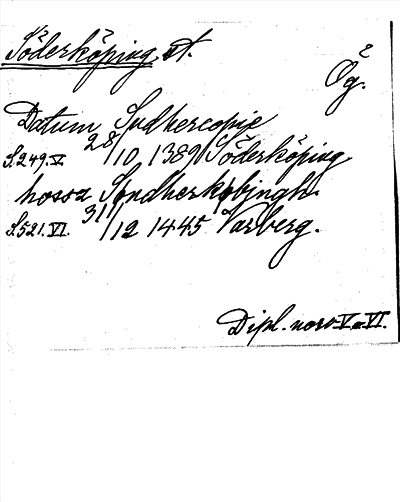 Söderköping, st.
Ög.
Datum Sudhercopie
S. 249. V 28/10 1389 Söderköping
hossa Søndherkøbjngh.
S. 521. VI. 31/12 1445 Varberg.
Dipl. norv. V o. VI.